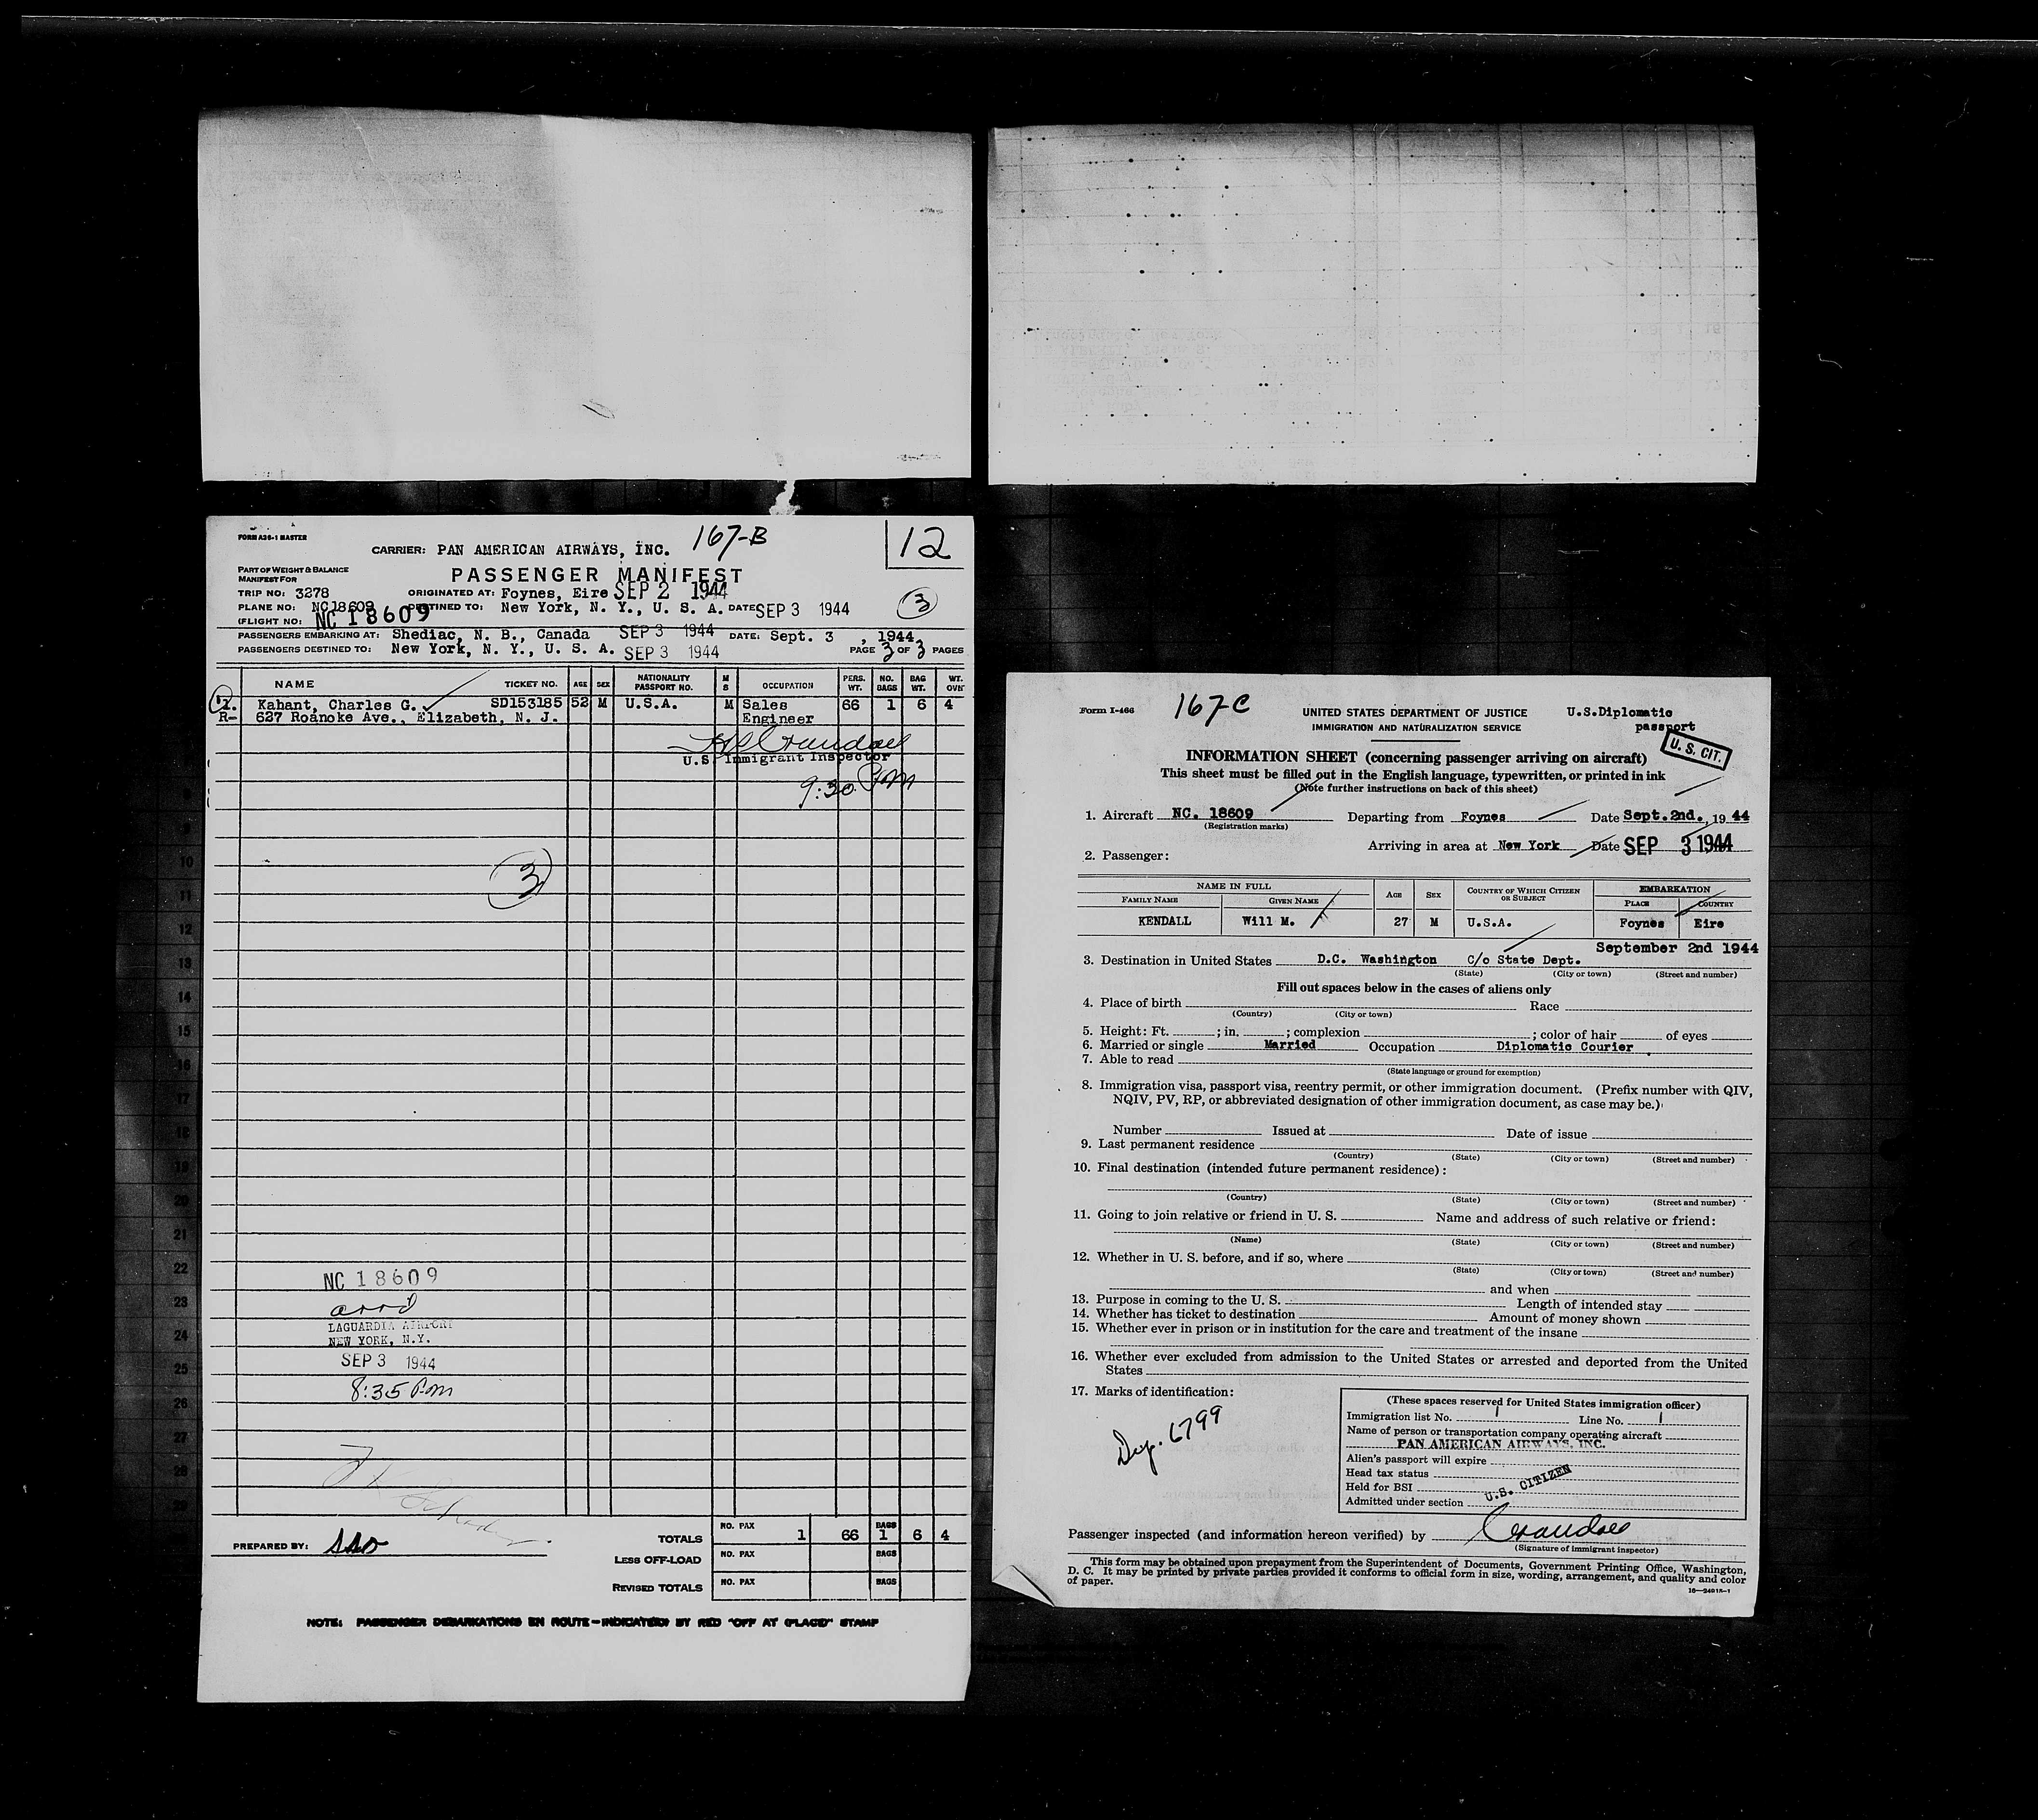 FORM A26-1 MASTER
167-B
12
CARRIER: PAN AMERICAN AIRWAYS, INC.
PART OF WEIGHT & BALANCE
MANIFEST FOR
PASSENGER MANIFEST
TRIP NO: 3278
ORIGINATED AT: Foynes, Eire SEP 2 1944
PLANE NO: NC18609
DESTINED TO: New York, N. Y., U. S. A. DATE SEP 3 1944
3
(FLIGHT NO: NC 18609
PASSENGERS EMBARKING AT: Shediac, N. B., Canada SEP 3 1944 DATE: Sept. 3 , 1944
PASSENGERS DESTINED TO: New York, N. Y., U. S. A. SEP 3 1944 PAGE 3 OF 3 PAGES
NAME TICKET NO. AGE SEX NATIONALITY PASSPORT NO. M S OCCUPATION PERS. WT. NO. BAGS BAG WT. WT. OVR
1. Kahant, Charles G. SD153185 52 M U.S.A. M Sales 66 1 6 4
R- 627 Roanoke Ave., Elizabeth, N. J. Engineer
Crandall
U.S. Immigrant Inspector
9:30 Pm
3
NC 18609
arrd
LAGUARDIA AIRPORT
NEW YORK, N.Y.
SEP 3 1944
8:35 Pm
PREPARED BY:
TOTALS NO. PAX 1 66 BAGS 1 6 4
LESS OFF-LOAD NO. PAX BAGS
REVISED TOTALS NO. PAX BAGS
NOTE: PASSENGER DEBARKATIONS EN ROUTE-INDICATED BY RED "OFF AT (PLACE)" STAMP
Form I-466
167-C
UNITED STATES DEPARTMENT OF JUSTICE
IMMIGRATION AND NATURALIZATION SERVICE
U.S.Diplomatic
passport
U. S. CIT.
INFORMATION SHEET (concerning passenger arriving on aircraft)
This sheet must be filled out in the English language, typewritten, or printed in ink
(Note further instructions on back of this sheet)
1. Aircraft NC. 18609 Departing from Foynes Date Sept.2nd., 19 44
(Registration marks)
Arriving in area at New York Date SEP 3 1944
2. Passenger:
NAME IN FULL AGE SEX COUNTRY OF WHICH CITIZEN OR SUBJECT EMBARKATION
FAMILY NAME GIVEN NAME PLACE COUNTRY
KENDALL Will M. 27 M U.S.A. Foynes Eire
September 2nd 1944
3. Destination in United States D.C. Washington C/o State Dept.
(State) (City or town) (Street and number)
Fill out spaces below in the cases of aliens only
4. Place of birth Race
(Country) (City or town)
5. Height: Ft. ; in. ; complexion ; color of hair of eyes
6. Married or single Married Occupation Diplomatic Courier
7. Able to read
(State language or ground for exemption)
8. Immigration visa, passport visa, reentry permit, or other immigration document. (Prefix number with QIV,
NQIV, PV, RP, or abbreviated designation of other immigration document, as case may be.)
Number Issued at Date of issue
9. Last permanent residence
(Country) (State) (City or town) (Street and number)
10. Final destination (intended future permanent residence):
(Country) (State) (City or town) (Street and number)
11. Going to join relative or friend in U. S. Name and address of such relative or friend:
(Name) (State) (City or town) (Street and number)
12. Whether in U. S. before, and if so, where
(State) (City or town) (Street and number)
and when
13. Purpose in coming to the U. S. Length of intended stay
14. Whether has ticket to destination Amount of money shown
15. Whether ever in prison or in institution for the care and treatment of the insane
16. Whether ever excluded from admission to the United States or arrested and deported from the United
States
17. Marks of identification:
Dip. 6799
(These spaces reserved for United States immigration officer)
Immigration list No. 1 Line No. 1
Name of person or transportation company operating aircraft
PAN AMERICAN AIRWAYS, INC.
Alien's passport will expire
Head tax status
Held for BSI
Admitted under section U.S. CITIZEN
Passenger inspected (and information hereon verified) by Crandall
(Signature of immigrant inspector)
This form may be obtained upon prepayment from the Superintendent of Documents, Government Printing Office, Washington,
D. C. It may be printed by private parties provided it conforms to official form in size, wording, arrangement, and quality and color
of paper.
10
11
12
13
14
15
16
17
18
19
20
21
22
23
24
25
26
27
28
29